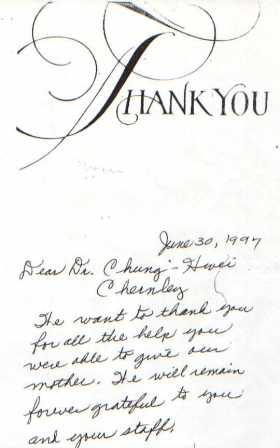 THANK YOU
June 30, 1997
Dear Dr. Chung-Hwei
Chernley
We want to thank you
for all the help you
were able to give our
mother. We will remain
forever grateful to you
and your staff.